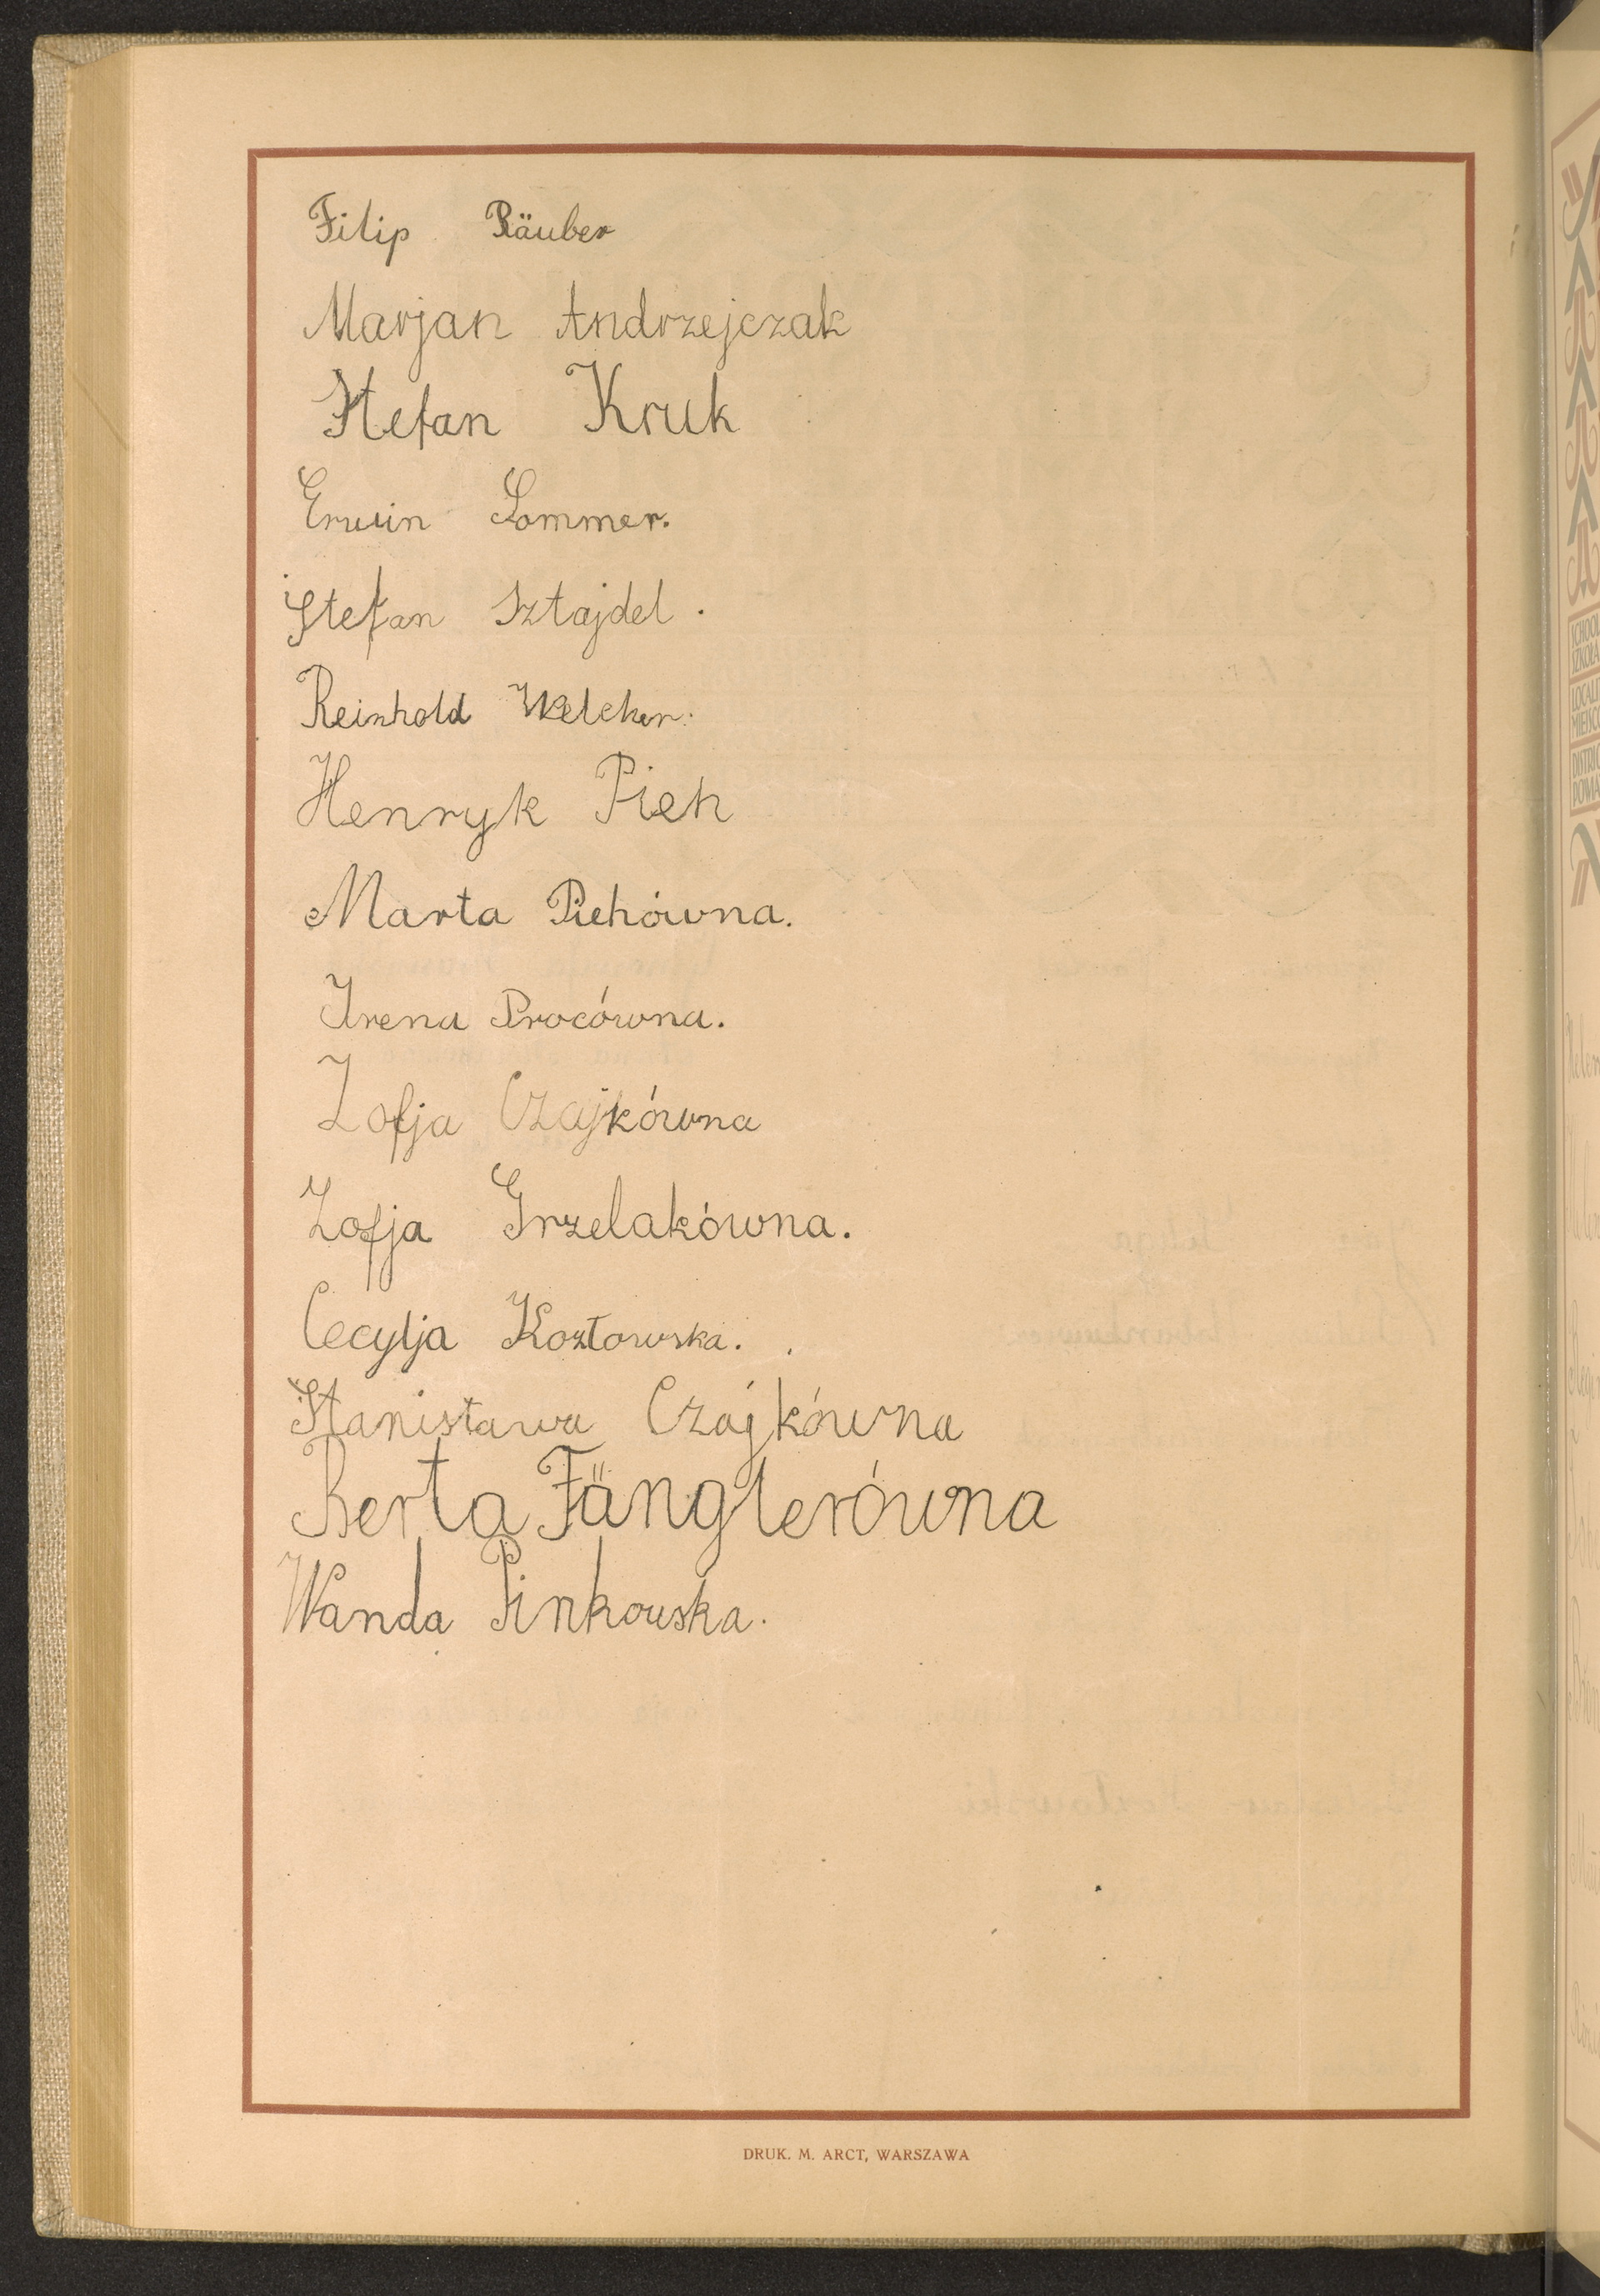 Filip Räuber
Marjan Andrzejczak
Stefan Kruk
Erwin Sommer.
Stefan Sztajdel.
Reinhold Welcker.
Henryk Pieh
Marta Piehówna.
Irena Procówna.
Zofja Czajkówna
Zofja Grzelakówna.
Cecylja Kozłowska.
Stanisława Czajkówna
Berta Fänglerówna
Wanda Pinkowska.
DRUK. M. ARCT, WARSZAWA